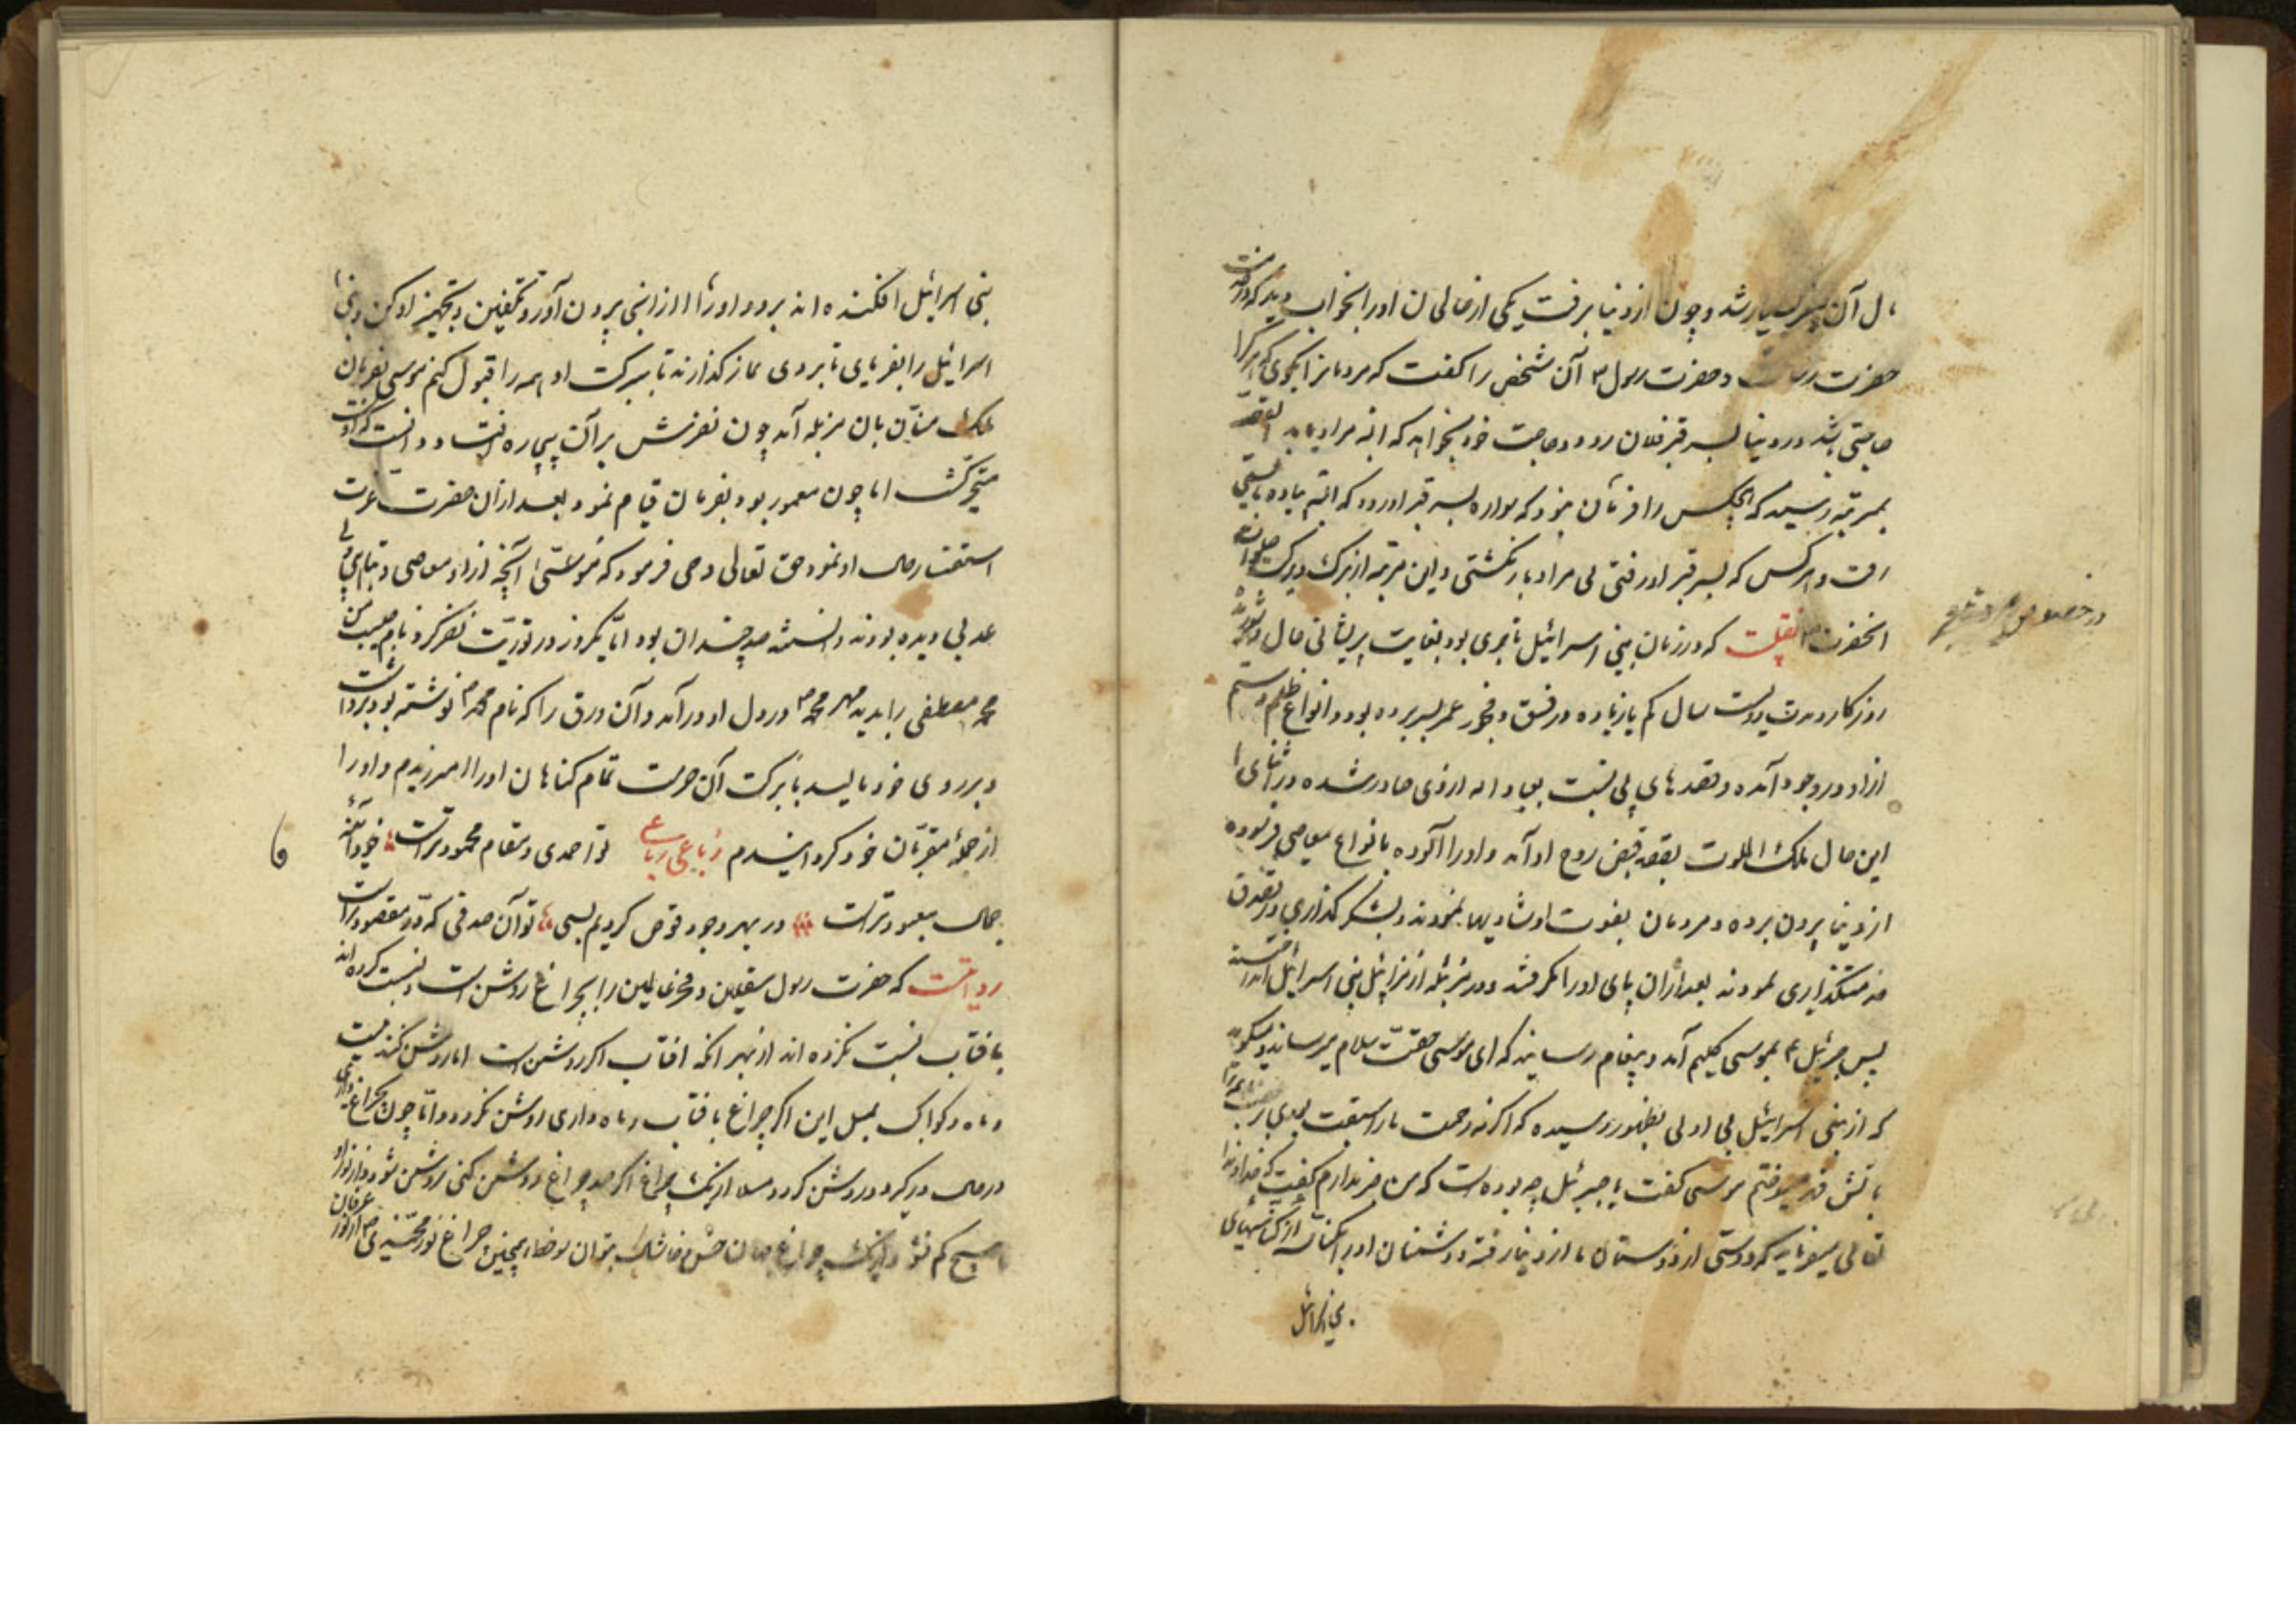 ل آن پسر بسیار شد و چون از دنیا برفت یکی از صالحان او را بخواب دید که در خدمت
حضرت رسالت و حضرت رسول آن شخص را گفت که مردمانرا بگوی که هر کرا
حاجتی باشد در دنیا بسر قبر فلان رود و حاجت خود بخواهد که البته مراد یابد القصه
بمرتبه رسید که هیچکس را فرمان نبود که سواره بسر قبر او رود که البته پیاده بایستی
رفت و هر کس که بسر قبر او رفتی بی مراد باز نگشتی و این مرتبه از برکت صلوات
آنحضرت نقلست که در زمان بنی اسرائیل تاجری بود بغایت پریشانی حال و شوریده
روزگار و مدت دویست سال کم یا زیاده در فسق و فجور عمر بسر برده بود و انواع ظلم و ستم
ازو در وجود آمده و قصدهای بی نسبت بعباد الله ازوی صادر شده در اثنای
این حال ملک الموت بقصد قبض روح او آمد و او را آلوده بانواع معاصی فرموده
از دنیا بیرون برده و مردمان بفوت او شادیها نمودند و بشکر گذاری و تصدق
خدمتگذاری نمودند بعد از آن پای او را گرفته و در مزبله از مزابل بنی اسرائیل انداختند
پس جبرئیل بموسی کلیم آمد و پیغام رسانید که ای موسی حقت سلام میرساند و میگوید
که از بنی اسرائیل بی ادبی بظهور رسیده که اگر نه رحمت ما را سبقت بودی بر غضب
باتش قهر میسوختم موسی گفت یا جبرئیل چه بوده است که من خبر ندارم گفت که خداوند
تعالی میفرماید که دوستی از دوستان ما از دنیا رفته و دشمنان او را بکناسه از کناسهای
بنی اسرائیل
بنی اسرائیل افکنده اند برو و او را از انجا بیرون آور و تکفین و تجهیز او کن و بنی
اسرائیل را بفرمای تا بر وی نماز گذارند تا ببرکت او همه را قبول کنم موسی بفرمان
ملک منان بان مزبله آمد چون نظرش بر آن بیچاره افتاد و دانست که کیست
متحیر گشت اما چون مأمور بود بفرمان قیام نمود بعد از آن حضرت عزت
استفسار حال او نمود حق تعالی وحی فرمود که موسی آنچه از او معاصی و قبایح
عد بی دیده بودند و دانسته صد چندان بود اما یکروز در توریت نظر کرد نام حبیب من
محمد مصطفی را بدید مهر محمد در دل او در آمد و آن ورق را که نام محمد نوشته بود برداشت
و بر روی خود مالید ببرکت آن حرمت تمام گناهان او را امرزیدم و او را
از جمله مقربان خود گردانیدم رباعی رباعی تو احمدی و مقام محمود تراست خود آئینه
جمال معبود تراست در بهر وجود غوص کردیم بسی تو آن صدفی که در مقصود تراست
روایتست که حضرت رسول ثقلین و فخر عالمین را بچراغ روشن است نسبت کرده اند
بافتاب نسبت نکرده اند از بهر انکه افتاب اگر روشن است اما روشن کننده نیست
و ماه و کواکب بمیل این اگر چراغ بافتاب و ماه داری روشن نگردد و اما چون بچراغ داری
در حال در گیرد و روشن گردد مثلا از یک چراغ اگر صد چراغ روشن کنی روشن شود و از نور او
هیچ کم نشود و از یک چراغ جهان خس و خاشاک بتوان سوخت همچنین چراغ نور محمدی از نور عرفان